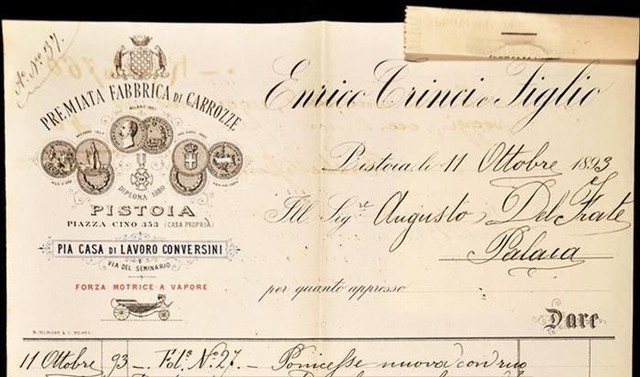 Aᵉ Nº 37.
PREMIATA FABBRICA DI CARROZZE
DIPLOMA 1880
PISTOIA
PIAZZA CINO 353 (CASA PROPRIA)
PIA CASA DI LAVORO CONVERSINI
VIA DEL SEMINARIO
FORZA MOTRICE A VAPORE
Enrico Trinci e Figlio
Pistoia, li 11 Ottobre 1893
Ill Sigʳᵉ Augusto Del Frate
Palaia
per quanto appresso
Dare
11 Ottobre 93 Folº Nº 27. nuova con